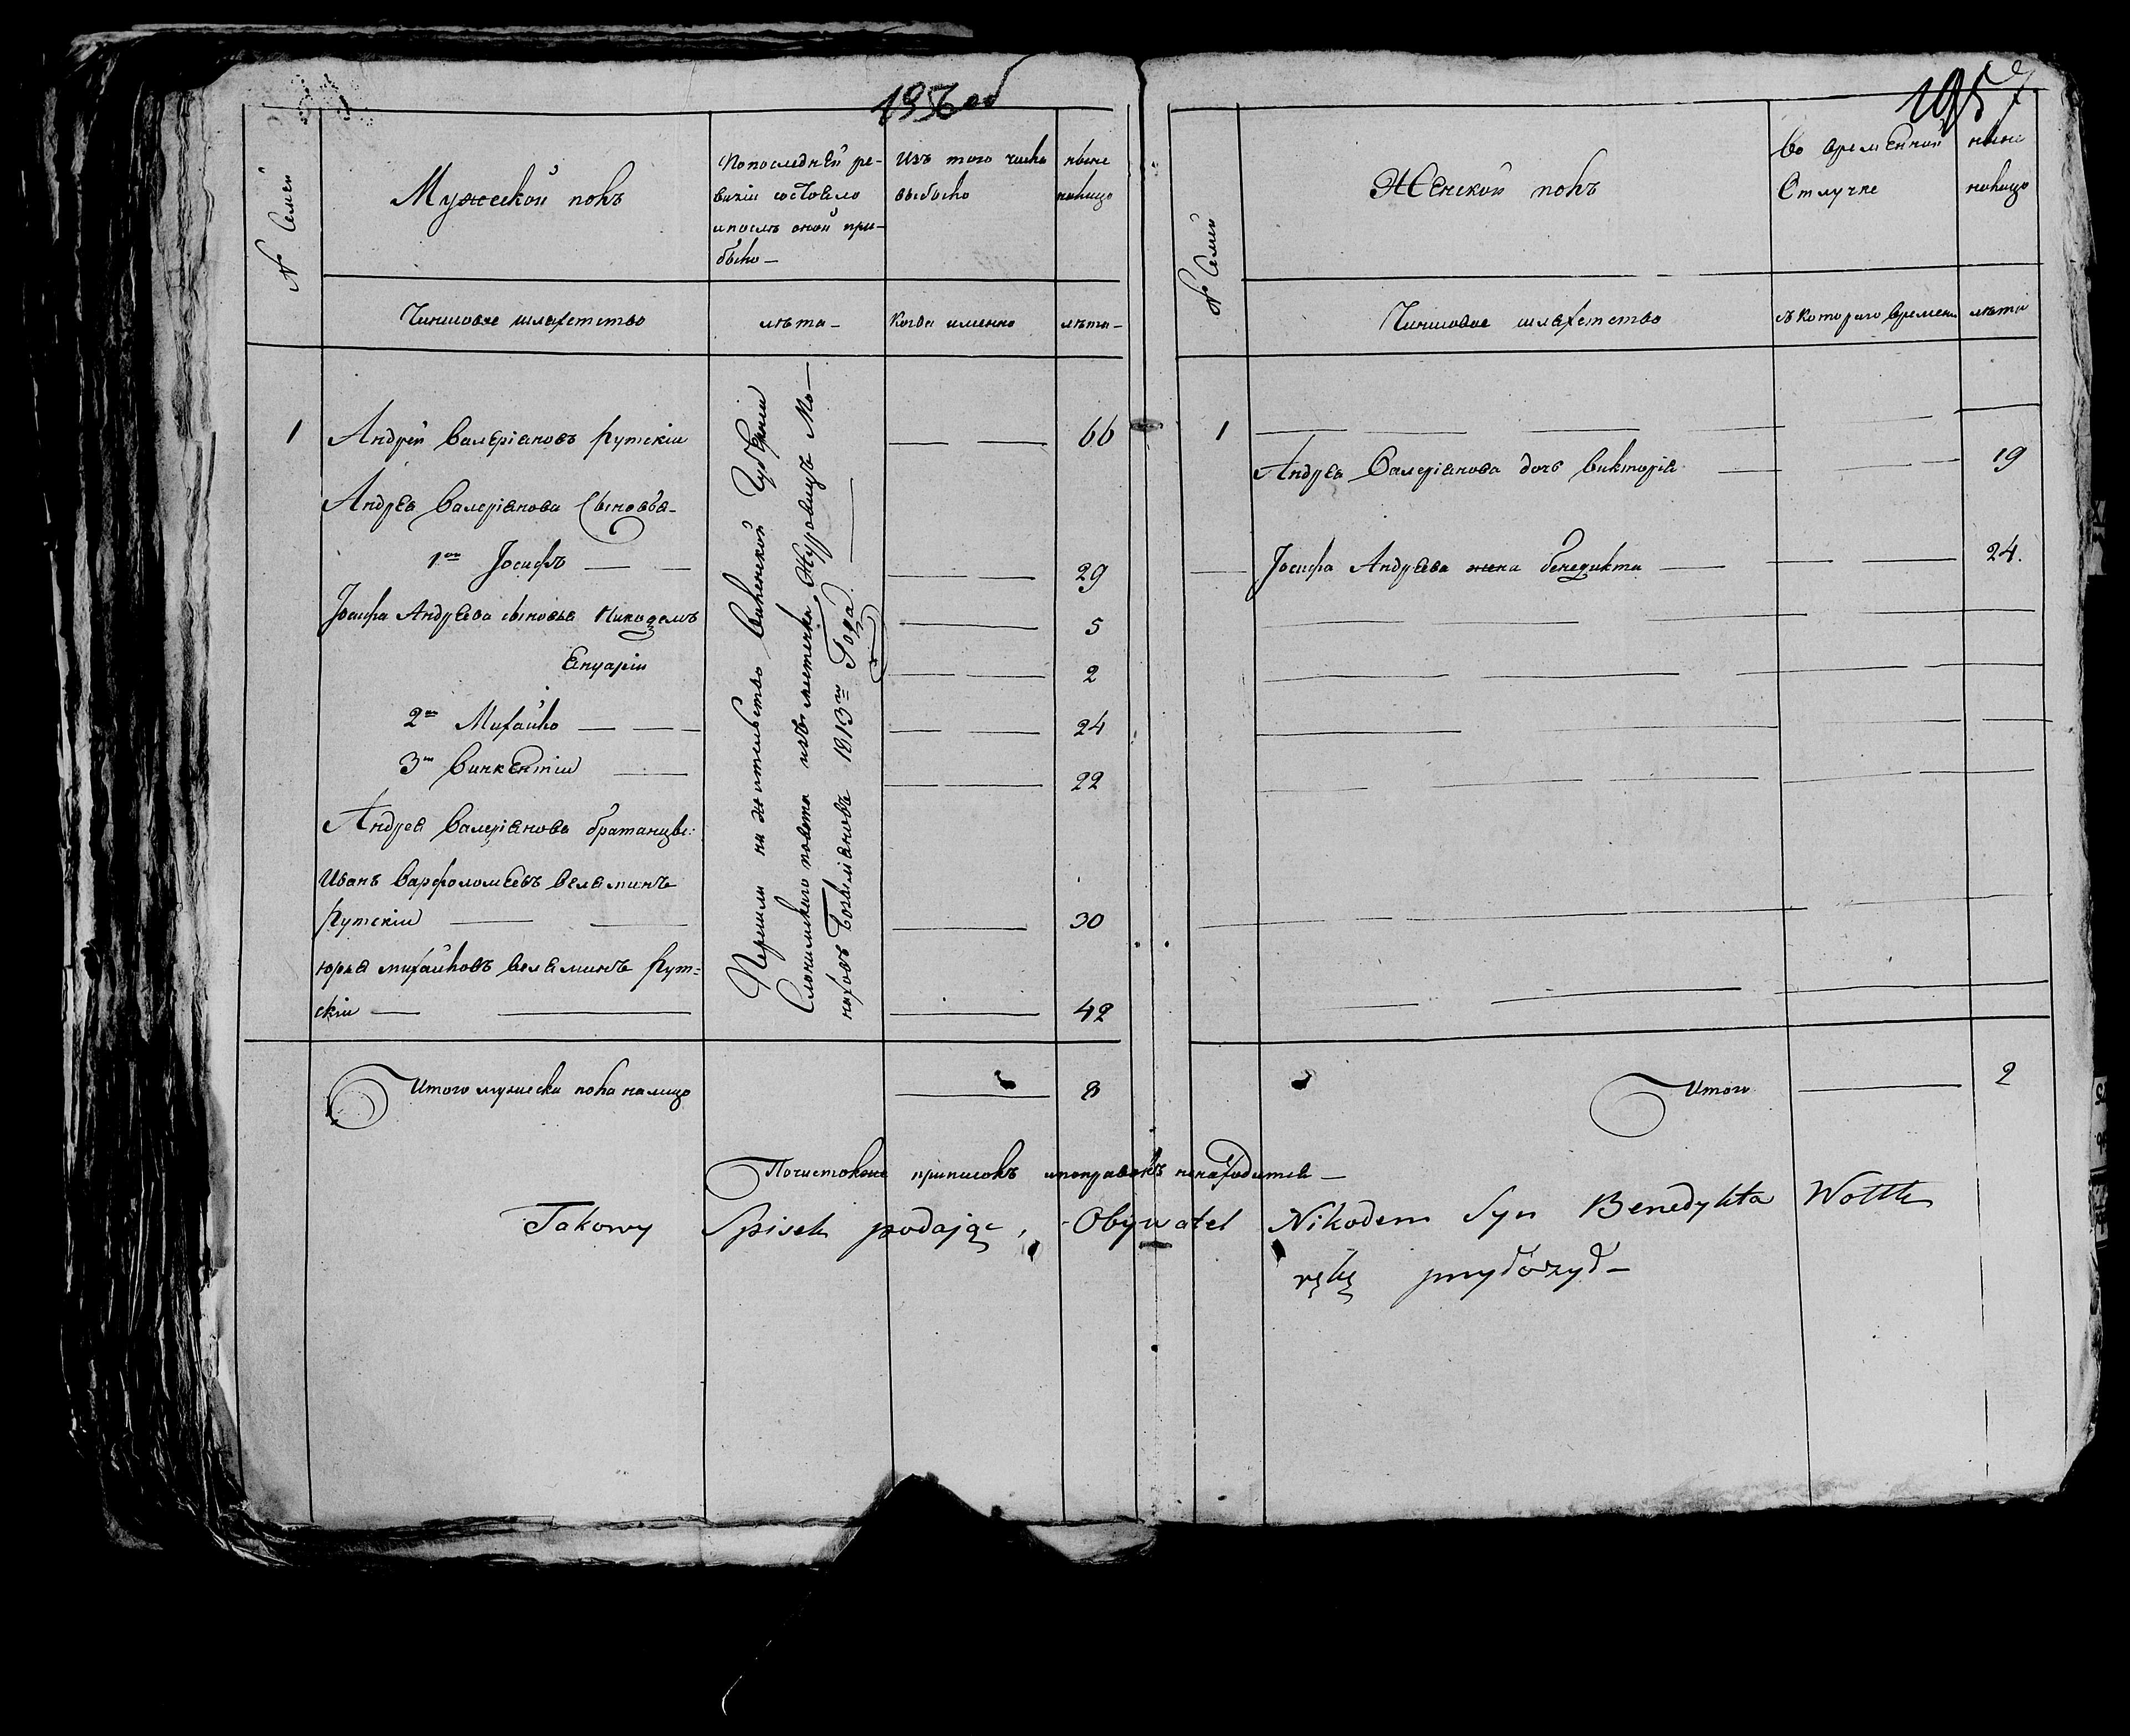 195 об
№ Семей
Мужеской полъ
По последней ре-
визіи состояло
и после оной при-
было —
Изъ того числа
выбыло
ныне
налицо
Чиншовое шляхетство
лѣта —
Когда именно
лѣта —
1 Андрей Валеріановъ Рутскій — — 66
Андрея Валеріанова Сыновья —
1й Іосифъ — — 29
Іосифа Андреева сыновья Никодемъ — 5
Януарій — — 2
2й Михайло — — — 24
3й Винкентій — — 22
Андрея Валеріанова братанцы:
Иванъ Варфоломеевъ Веляминъ
Рутскій — — 30
Юрья Михайловъ Веляминъ Рут=
скій — — 42
Перешли на жительство Виленской Губерніи
Слонимского повета изъ местечка Журовицъ Мо—
наховъ Базиліановъ 1813го Года —
Итого мужеска пола налицо — 8
№ Семей
Женской полъ
Во временной
Отлучке
ныне
налицо
Чиншовое шляхетство
съ которого времени
лѣта
1 — — — —
Андрея Валеріанова дочь Викторія — — 19
Іосифа Андреева жена Бенедикта — — 24.
Итого — 2
приписокъ и поправокъ ненаходится —
Takowy Spisek podając, Obywatel Nikodem Syn Benedykta Wolk
ręką